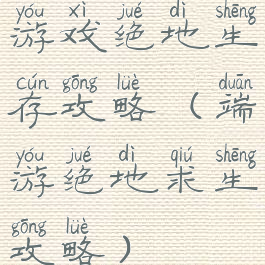 yóu xì jué dì shēng
游戏绝地生
cún gōng lüè duān
存攻略（端
yóu jué dì qiú shēng
游绝地求生
gōng lüè
攻略）